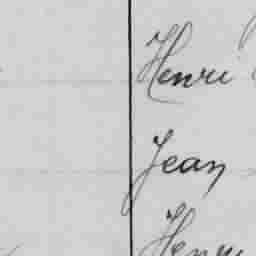 Henri
Jean
Henri